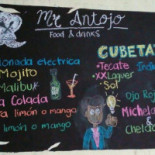 Mr Antojo
Food & drinks
onada electrica
Mojito
Malibu
a Colada
limón o mango
limón o mango
CUBETA
• Tecate
• XX Lager
• Sol
Ojo Rojo
Michela
&
Chelad